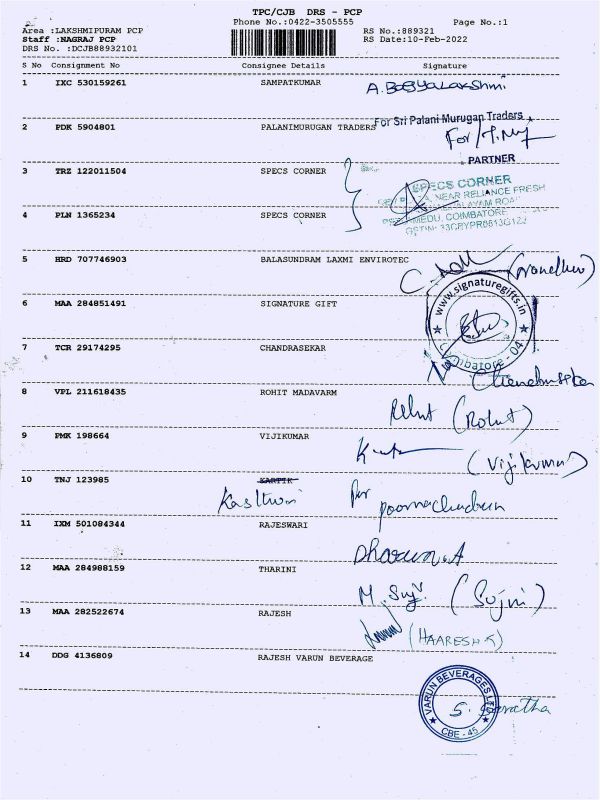 TPC/CJB DRS - PCP
Phone No.:0422-3505555 Page No.:1
Area :LAKSHMIPURAM PCP RS No.:889321
Staff :NAGRAJ PCP RS Date:10-Feb-2022
DRS No. :DCJB88932101
S No Consignment No Consignee Details Signature
1 IXC 530159261 SAMPATKUMAR A. Bagyalakshmi
For Sri Palani Murugan Traders
2 PDK 5904801 PALANIMURUGAN TRADERS For
PARTNER
3 TRZ 122011504 SPECS CORNER
SPECS CORNER
NEAR RELIANCE FRESH
4 PLN 1365234 SPECS CORNER
COIMBATORE
5 HRD 707746903 BALASUNDRAM LAXMI ENVIROTEC
6 MAA 284851491 SIGNATURE GIFT
www.signaturegifts.in
Coimbatore - 04
7 TCR 29174295 CHANDRASEKAR
8 VPL 211618435 ROHIT MADAVARM
(Rohit)
9 PMK 198664 VIJIKUMAR
(Vijikumar)
10 TNJ 123985 KARTIK
for
11 IXM 501084344 RAJESWARI
12 MAA 284988159 THARINI
(Sujni)
13 MAA 282522674 RAJESH
(HAARESH K)
14 DDG 4136809 RAJESH VARUN BEVERAGE
VARUN BEVERAGES LTD
CBE - 45